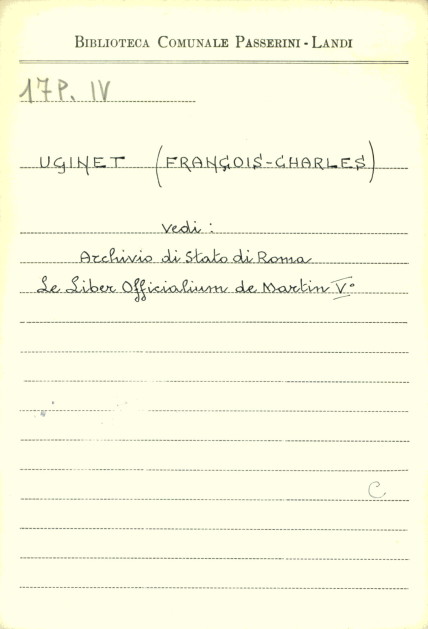 BIBLIOTECA COMUNALE PASSERINI - LANDI
17 P. IV
UGINET (FRANÇOIS-CHARLES)
vedi :
Archivio di Stato di Roma
Le Liber Officialium de Martin V°
C